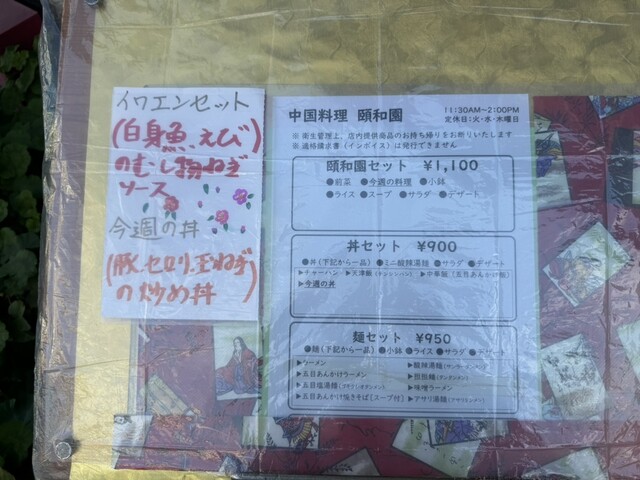 イワエンセット
(白身魚、えび)
のむし物ねぎ
ソース
今週の丼
(豚、セロリ、玉ねぎ)
の炒め丼
中国料理 頤和園
11:30AM~2:00PM
定休日:火・水・木曜日
※ 衛生管理上、店内提供商品のお持ち帰りをお断りいたします
※ 適格請求書(インボイス)は発行できません
頤和園セット ¥1,100
●前菜 ●今週の料理 ●小鉢
●ライス ●スープ ●サラダ ●デザート
丼セット ¥900
●丼(下記から一品) ●ミニ酸辣湯麺 ●サラダ ●デザート
▶チャーハン ▶天津飯(テンシンハン) ▶中華飯(五目あんかけ飯)
▶今週の丼
麺セット ¥950
●麺(下記から一品) ●小鉢 ●ライス ●サラダ ●デザート
▶ラーメン ▶酸辣湯麺(サンラータンメン)
▶五目あんかけラーメン ▶担担麺(タンタンメン)
▶五目塩湯麺(ゴモクシオタンメン) ▶味噌ラーメン
▶五目あんかけ焼きそば(スープ付) ▶アサリ湯麺(アサリタンメン)